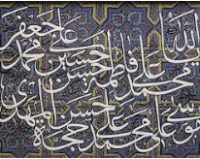 الله محمد علي فاطمة حسن حسين علي محمد جعفر
موسى علي محمد علي حسن المهدي حجة